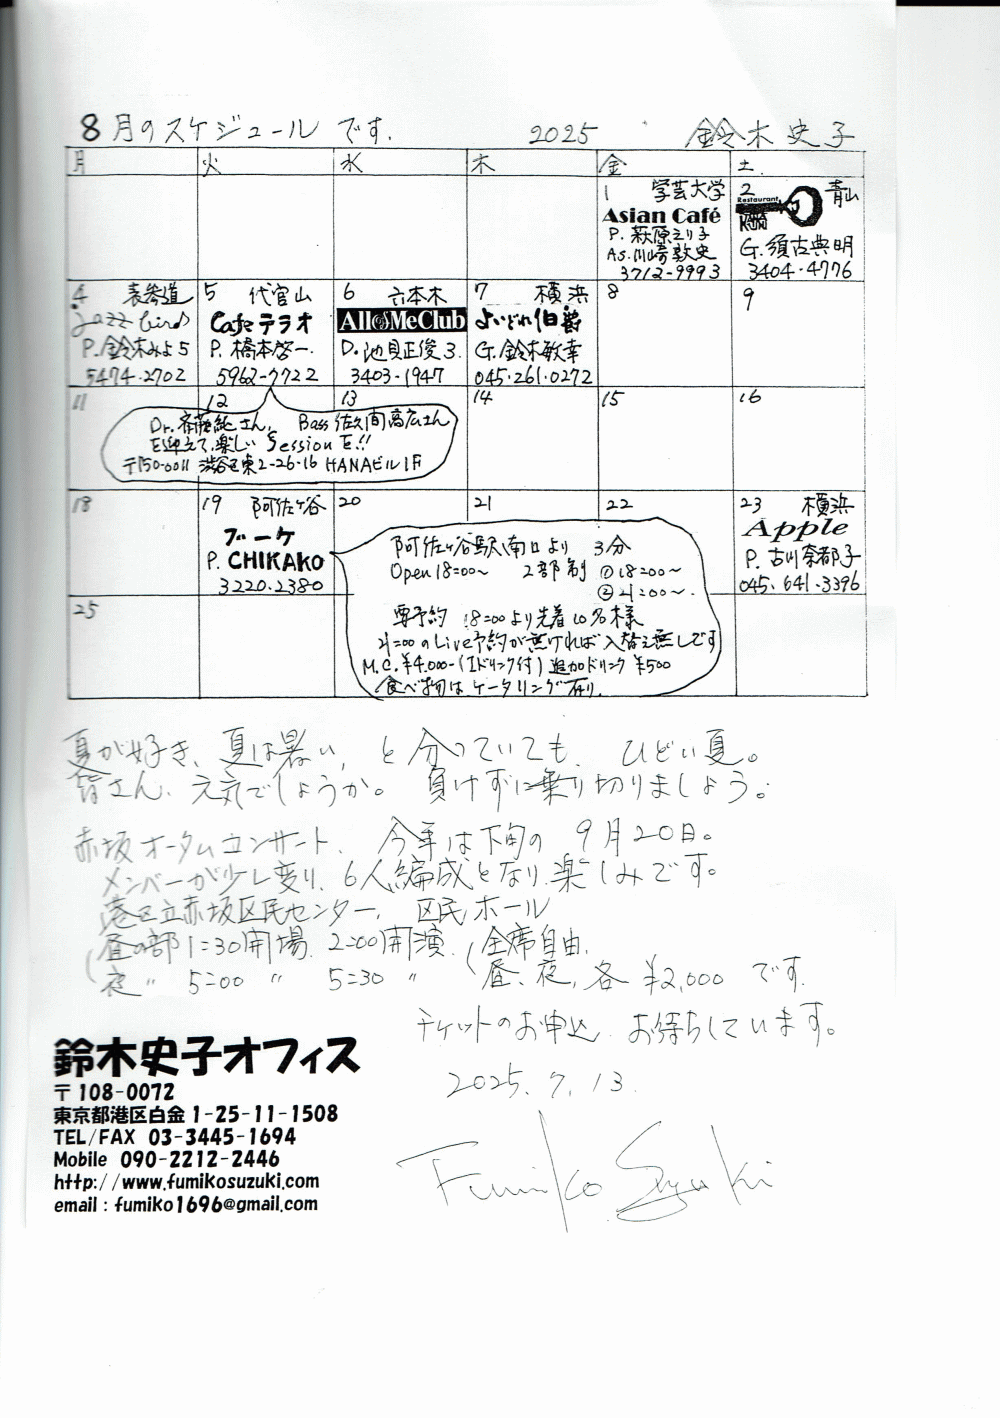 8月のスケジュールです. 2025 鈴木史子
月 火 水 木 金 土
1 学芸大学
Asian Café
P. 萩原えり子
As. 川崎敦史
3712-9993
2 青山
Restaurant
G. 須古典明
3404-4776
4 表参道
Jazz bird
P. 鈴木みよ5
5474-2702
5 代官山
Cafeテラオ
P. 橋本啓一.
5962-7722
6 六本木
All of Me Club
D. 池貝正俊3
3403-1947
7 横浜
よいどれ伯爵
G. 鈴木敏幸
045-261-0272
8
9
11
12
13
14
15
16
Dr. 斎藤純さん, Bass 佐久間高広さん
を迎えて、楽しいSessionを!!
〒150-0011 渋谷区東2-26-16 HANAビル1F
18
19 阿佐ヶ谷
ブーケ
P. CHIKAKO
3220-2380
20
21
22
23 横浜
Apple
P. 古川奈都子
045-641-3396
25
阿佐ヶ谷駅南口より 3分
Open 18:00〜 2部制 ①18:00〜
②21:00〜.
要予約 18:00より先着10名様
21:00のLive予約が無ければ入替え無しです
M.C. ¥4.000-(1ドリンク付) 追加ドリンク ¥500
食べ物はケータリング有り.
夏が好き、夏は暑い, と分っていても、ひどい夏。
皆さん、元気でしょうか。負けずに乗り切りましょう。
赤坂オータムコンサート、今年は下旬の9月20日。
メンバーが少し変り、6人編成となり、楽しみです。
港区立赤坂区民センター, 区民ホール
(昼の部 1:30開場、2:00開演. (全席自由.
夜 〃 5:00 〃 5:30 〃 昼、夜, 各¥2,000です.
チケットのお申込、お待ちしています。
2025. 7. 13.
Fumiko Suzuki
鈴木史子オフィス
〒108-0072
東京都港区白金1-25-11-1508
TEL/FAX 03-3445-1694
Mobile 090-2212-2446
http://www.fumikosuzuki.com
email : fumiko1696@gmail.com